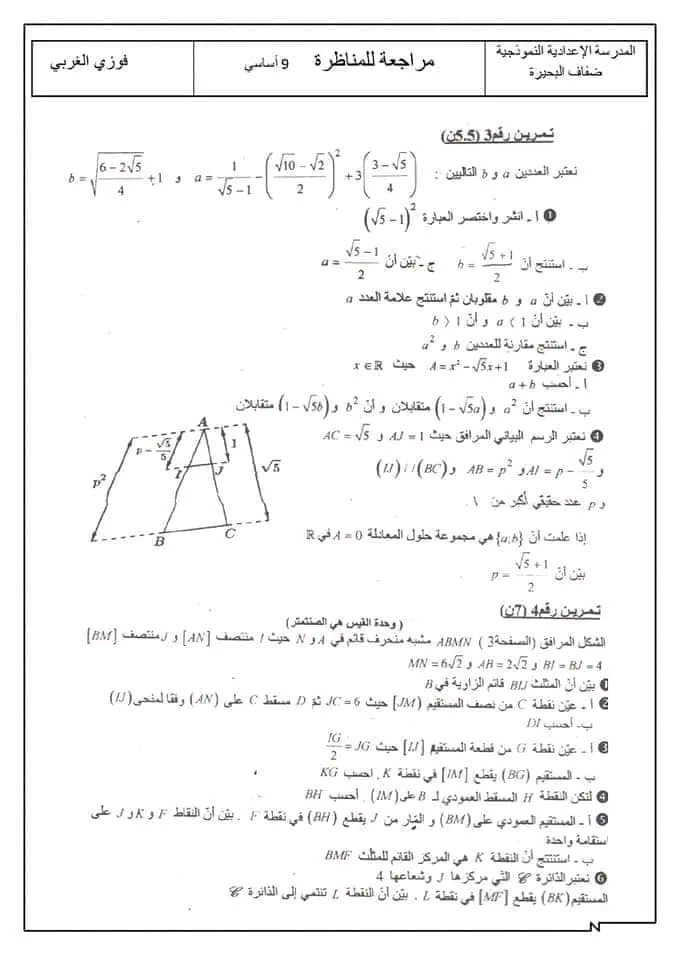 المدرسة الإعدادية النموذجية
ضفاف البحيرة
مراجعة للمناظرة 9 أساسي
فوزي الغربي
تمرين رقم3 (5.5ن)
نعتبر العددين a و b التاليين : a = \frac{1}{\sqrt{5}-1} - \left(\frac{\sqrt{10}-\sqrt{2}}{2}\right)^2 + 3\left(\frac{3-\sqrt{5}}{4}\right) و b = \sqrt{\frac{6-2\sqrt{5}}{4}}+1
❶ أ - انشر واختصر العبارة (\sqrt{5}-1)^2
ب - استنتج أنّ b = \frac{\sqrt{5}+1}{2} ج - بيّن أنّ a = \frac{\sqrt{5}-1}{2}
❷ أ - بيّن أنّ a و b مقلوبان ثمّ استنتج علامة العدد a
ب - بيّن أنّ a ⟨ 1 و أنّ b ⟩ 1
ج - استنتج مقارنة للعددين b و a²
❸ نعتبر العبارة A = x² - √5x + 1 حيث x ∈ ℝ
أ - أحسب a + b
ب - استنتج أنّ a² و (1-√5a) متقابلان و أنّ b² و (1-√5b) متقابلان
❹ نعتبر الرسم البياني المرافق حيث AJ = 1 و AC = √5
و AI = p - \frac{\sqrt{5}}{5} و AB = p² و (IJ) // (BC)
و p عدد حقيقي أكبر من ١
إذا علمت أنّ {a;b} هي مجموعة حلول المعادلة A = 0 في ℝ
بيّن أنّ p = \frac{\sqrt{5}+1}{2}
A
p - \frac{\sqrt{5}}{5}
1
p²
I
J
√5
B
C
تمرين رقم4 (7ن)
( وحدة القيس هي الصنتمتر)
الشكل المرافق (الصفحة3 ) ABMN مشبه منحرف قائم في A و N حيث I منتصف [AN] و J منتصف [BM]
BI = BJ = 4 و AB = 2√2 و MN = 6√2
❶ بيّن أنّ المثلث BIJ قائم الزاوية في B
❷ أ - عيّن نقطة C من نصف المستقيم [JM) حيث JC = 6 ثمّ D مسقط C على (AN) وفقا لمنحى (IJ)
ب - أحسب DI
❸ أ - عيّن نقطة G من قطعة المستقيم [IJ] حيث \frac{IG}{2} = JG
ب - المستقيم (BG) يقطع [IM] في نقطة K . احسب KG
❹ لتكن النقطة H المسقط العمودي لـ B على (IM) . أحسب BH
❺ أ - المستقيم العمودي على (BM) و المار من J يقطع (BH) في نقطة F . بيّن أنّ النقاط F و K و J على
استقامة واحدة
ب - استنتج أنّ النقطة K هي المركز القائم للمثلث BMF
❻ نعتبر الدائرة 𝒞 التي مركزها J وشعاعها 4
المستقيم (BK) يقطع [MF] في نقطة L . بيّن أنّ النقطة L تنتمي إلى الدائرة 𝒞